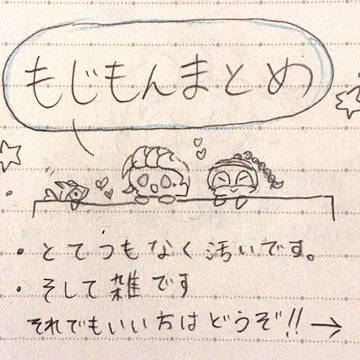 もじもんまとめ
・とてつもなく汚いです。
・そして雑です
それでもいい方はどうぞ!!→